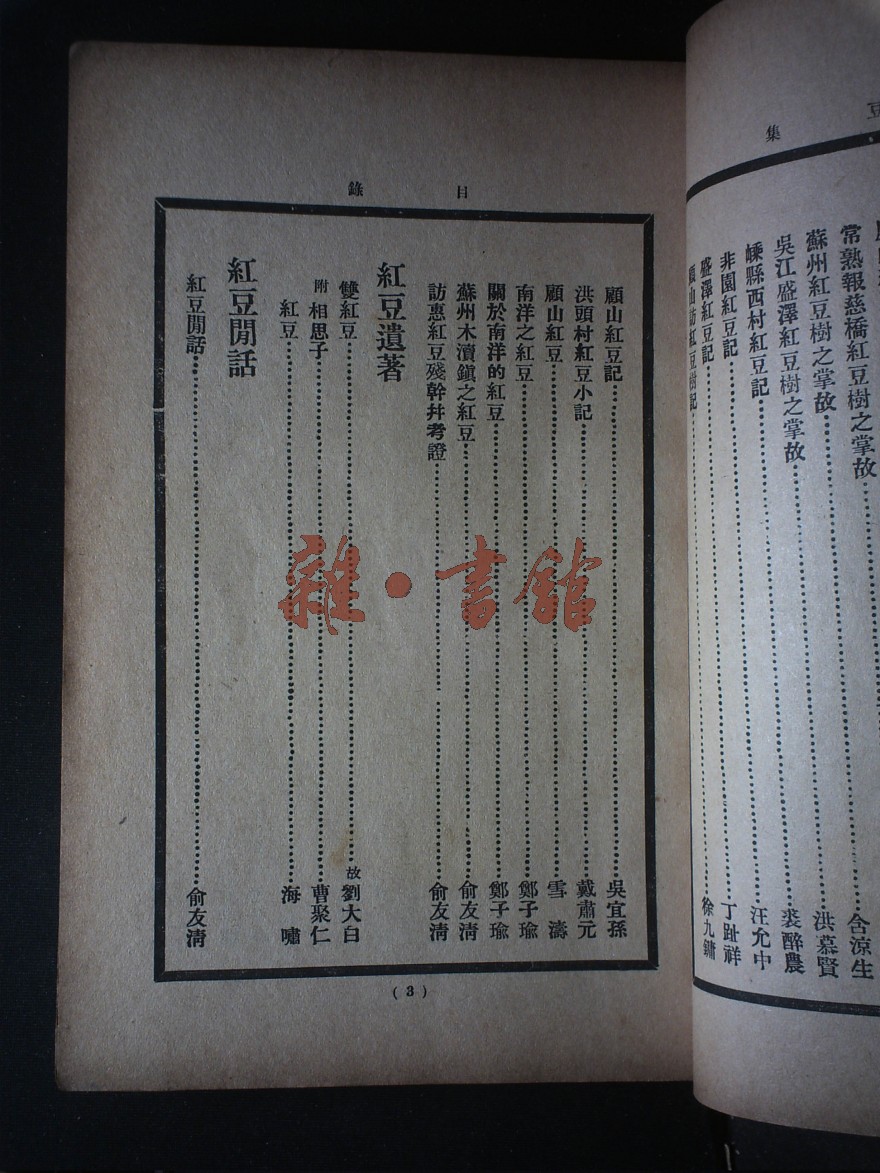 集
常熟報慈橋紅豆樹之掌故……含涼生
蘇州紅豆樹之掌故……洪慕賢
吳江盛澤紅豆樹之掌故……裘醉農
嵊縣西村紅豆記……汪允中
非園紅豆記……丁趾祥
盛澤紅豆記……徐九鏞
顧山訪紅豆樹記……
目錄
顧山紅豆記……吳宜孫
洪頭村紅豆小記……戴肅元
顧山紅豆……雪濤
南洋之紅豆……鄭子瑜
關於南洋的紅豆……鄭子瑜
蘇州木瀆鎮之紅豆……俞友清
訪惠紅豆殘幹幷考證……俞友清
紅豆遺著
雙紅豆……故劉大白
附相思子……曹聚仁
紅豆……海嘯
紅豆閒話
紅豆閒話……俞友清
(3)
雜·書館